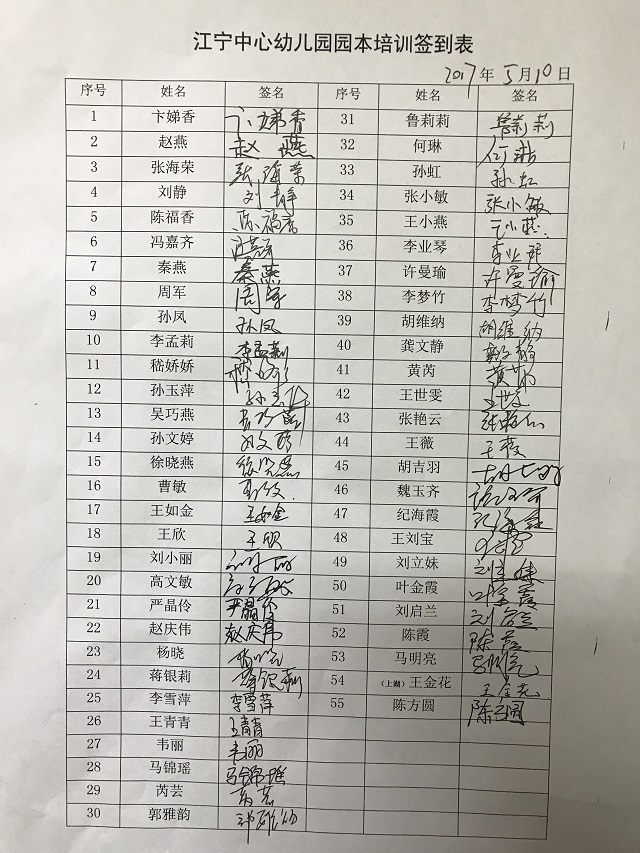 江宁中心幼儿园园本培训签到表
2017年5月10日
序号 姓名 签名 序号 姓名 签名
1 卞娣香 卞娣香 31 鲁莉莉 鲁莉莉
2 赵燕 赵燕 32 何琳 何琳
3 张海荣 张海荣 33 孙虹 孙虹
4 刘静 刘静 34 张小敏 张小敏
5 陈福香 陈福香 35 王小燕 王小燕
6 冯嘉齐 冯嘉齐 36 李业琴 李业琴
7 秦燕 秦燕 37 许曼瑜 许曼瑜
8 周军 周军 38 李梦竹 李梦竹
9 孙凤 孙凤 39 胡维纳 胡维纳
10 李孟莉 李孟莉 40 龚文静 龚文静
11 嵇娇娇 41 黄芮 黄芮
12 孙玉萍 42 王世雯 王世雯
13 吴巧燕 吴巧燕 43 张艳云 张艳云
14 孙文婷 孙文婷 44 王薇 王薇
15 徐晓燕 徐晓燕 45 胡吉羽 胡吉羽
16 曹敏 46 魏玉齐
17 王如金 王如金 47 纪海霞 纪海霞
18 王欣 王欣 48 王刘宝
19 刘小丽 49 刘立妹 刘立妹
20 高文敏 50 叶金霞 叶金霞
21 严晶伶 严晶伶 51 刘启兰 刘启兰
22 赵庆伟 赵庆伟 52 陈霞 陈霞
23 杨晓 53 马明亮 马明亮
24 蒋银莉 蒋银莉 54 （上湖）王金花 王金花
25 李雪萍 李雪萍 55 陈方圆 陈方圆
26 王青青 王青青
27 韦丽 韦丽
28 马锦瑶 马锦瑶
29 芮芸 芮芸
30 郭雅韵 郭雅韵